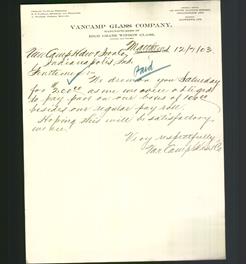 VANCAMP GLASS COMPANY,
MANUFACTURERS OF
HIGH GRADE WINDOW GLASS.
Matthews 12/7/03
VanCamp Hdw & Iron Co
Indianapolis, Ind.
Gentlemen:- Paid
We drew on you Saturday
for as we were obliged
to pay part on our loans of
besides our regular pay roll.
Hoping this will be satisfactory,
we are
Very respectfully
VanCamp Glass Co